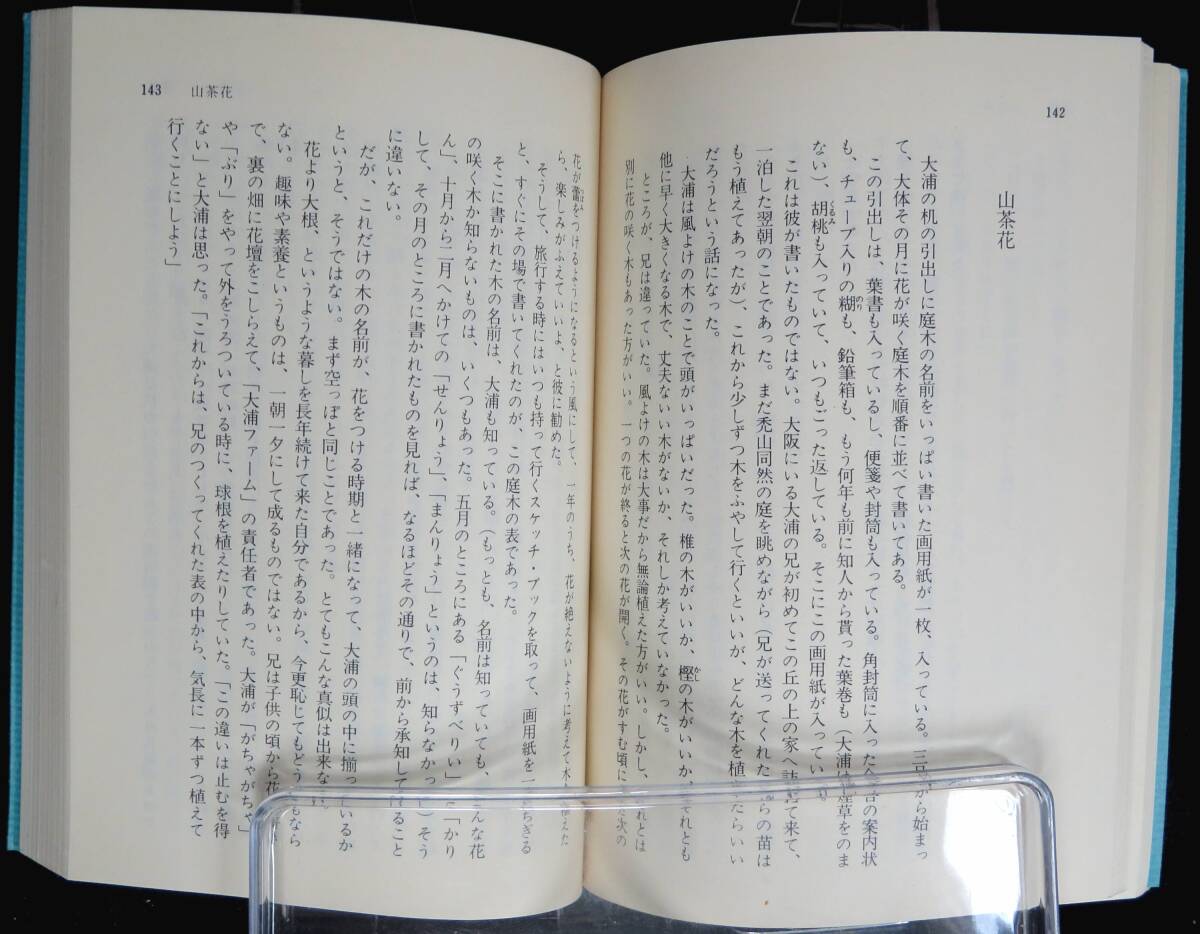 142
山茶花
大浦の机の引出しに庭木の名前をいっぱい書いた画用紙が一枚、入っている。三月から始まっ
て、大体その月に花が咲く庭木を順番に並べて書いてある。
この引出しは、葉書も入っているし、便箋や封筒も入っている。角封筒に入った会合の案内状
も、チューブ入りの糊も、鉛筆箱も、もう何年も前に知人から貰った葉巻も(大浦は煙草をのま
ない)、胡桃も入っていて、いつもごった返している。そこにこの画用紙が入っている。
これは彼が書いたものではない。大阪にいる大浦の兄が初めてこの丘の上の家へ訪ねて来て、
一泊した翌朝のことであった。まだ禿山同然の庭を眺めながら(兄が送ってくれたばらの苗は
もう植えてあったが)、これから少しずつ木をふやして行くといいが、どんな木を植えたらいい
だろうという話になった。
大浦は風よけの木のことで頭がいっぱいだった。椎の木がいいか、樫の木がいいか、それとも
他に早く大きくなる木で、丈夫ない木がないか、それしか考えていなかった。
ところが、兄は違っていた。風よけの木は大事だから無論植えた方がいい。しかし、それとは
別に花の咲く木もあった方がいい。一つの花が終ると次の花が開く。その花がすむ頃にまた次の
143 山茶花
花が蕾をつけるようになるという風にして、一年のうち、花が絶えないように考えて木を植えた
ら、楽しみがふえていいよ、と彼に勧めた。
そうして、旅行する時にはいつも持って行くスケッチ・ブックを取って、画用紙を一枚ちぎる
と、すぐにその場で書いてくれたのが、この庭木の表であった。
そこに書かれた木の名前は、大浦も知っている。(もっとも、名前は知っていても、どんな花
の咲く木か知らないものは、いくつもあった。五月のところにある「ぐうずべりい」と「かり
ん」、十月から二月へかけての「せんりょう」、「まんりょう」というのは、知らなかった)そう
して、その月のところに書かれたものを見れば、なるほどその通りで、前から承知していること
に違いない。
だが、これだけの木の名前が、花をつける時期と一緒になって、大浦の頭の中に揃っているか
というと、そうではない。まず空っぽと同じことであった。とてもこんな真似は出来ない。
花より大根、というような暮しを長年続けて来た自分であるから、今更恥じてもどうにもなら
ない。趣味や素養というものは、一朝一夕にして成るものではない。兄は子供の頃から花
で、裏の畑に花壇をこしらえて、「大浦ファーム」の責任者であった。大浦が「がちゃがちゃ」
や「ぶり」をやって外をうろついている時に、球根を植えたりしていた。「この違いは止むを得
ない」と大浦は思った。「これからは、兄のつくってくれた表の中から、気長に一本ずつ植えて
行くことにしよう」